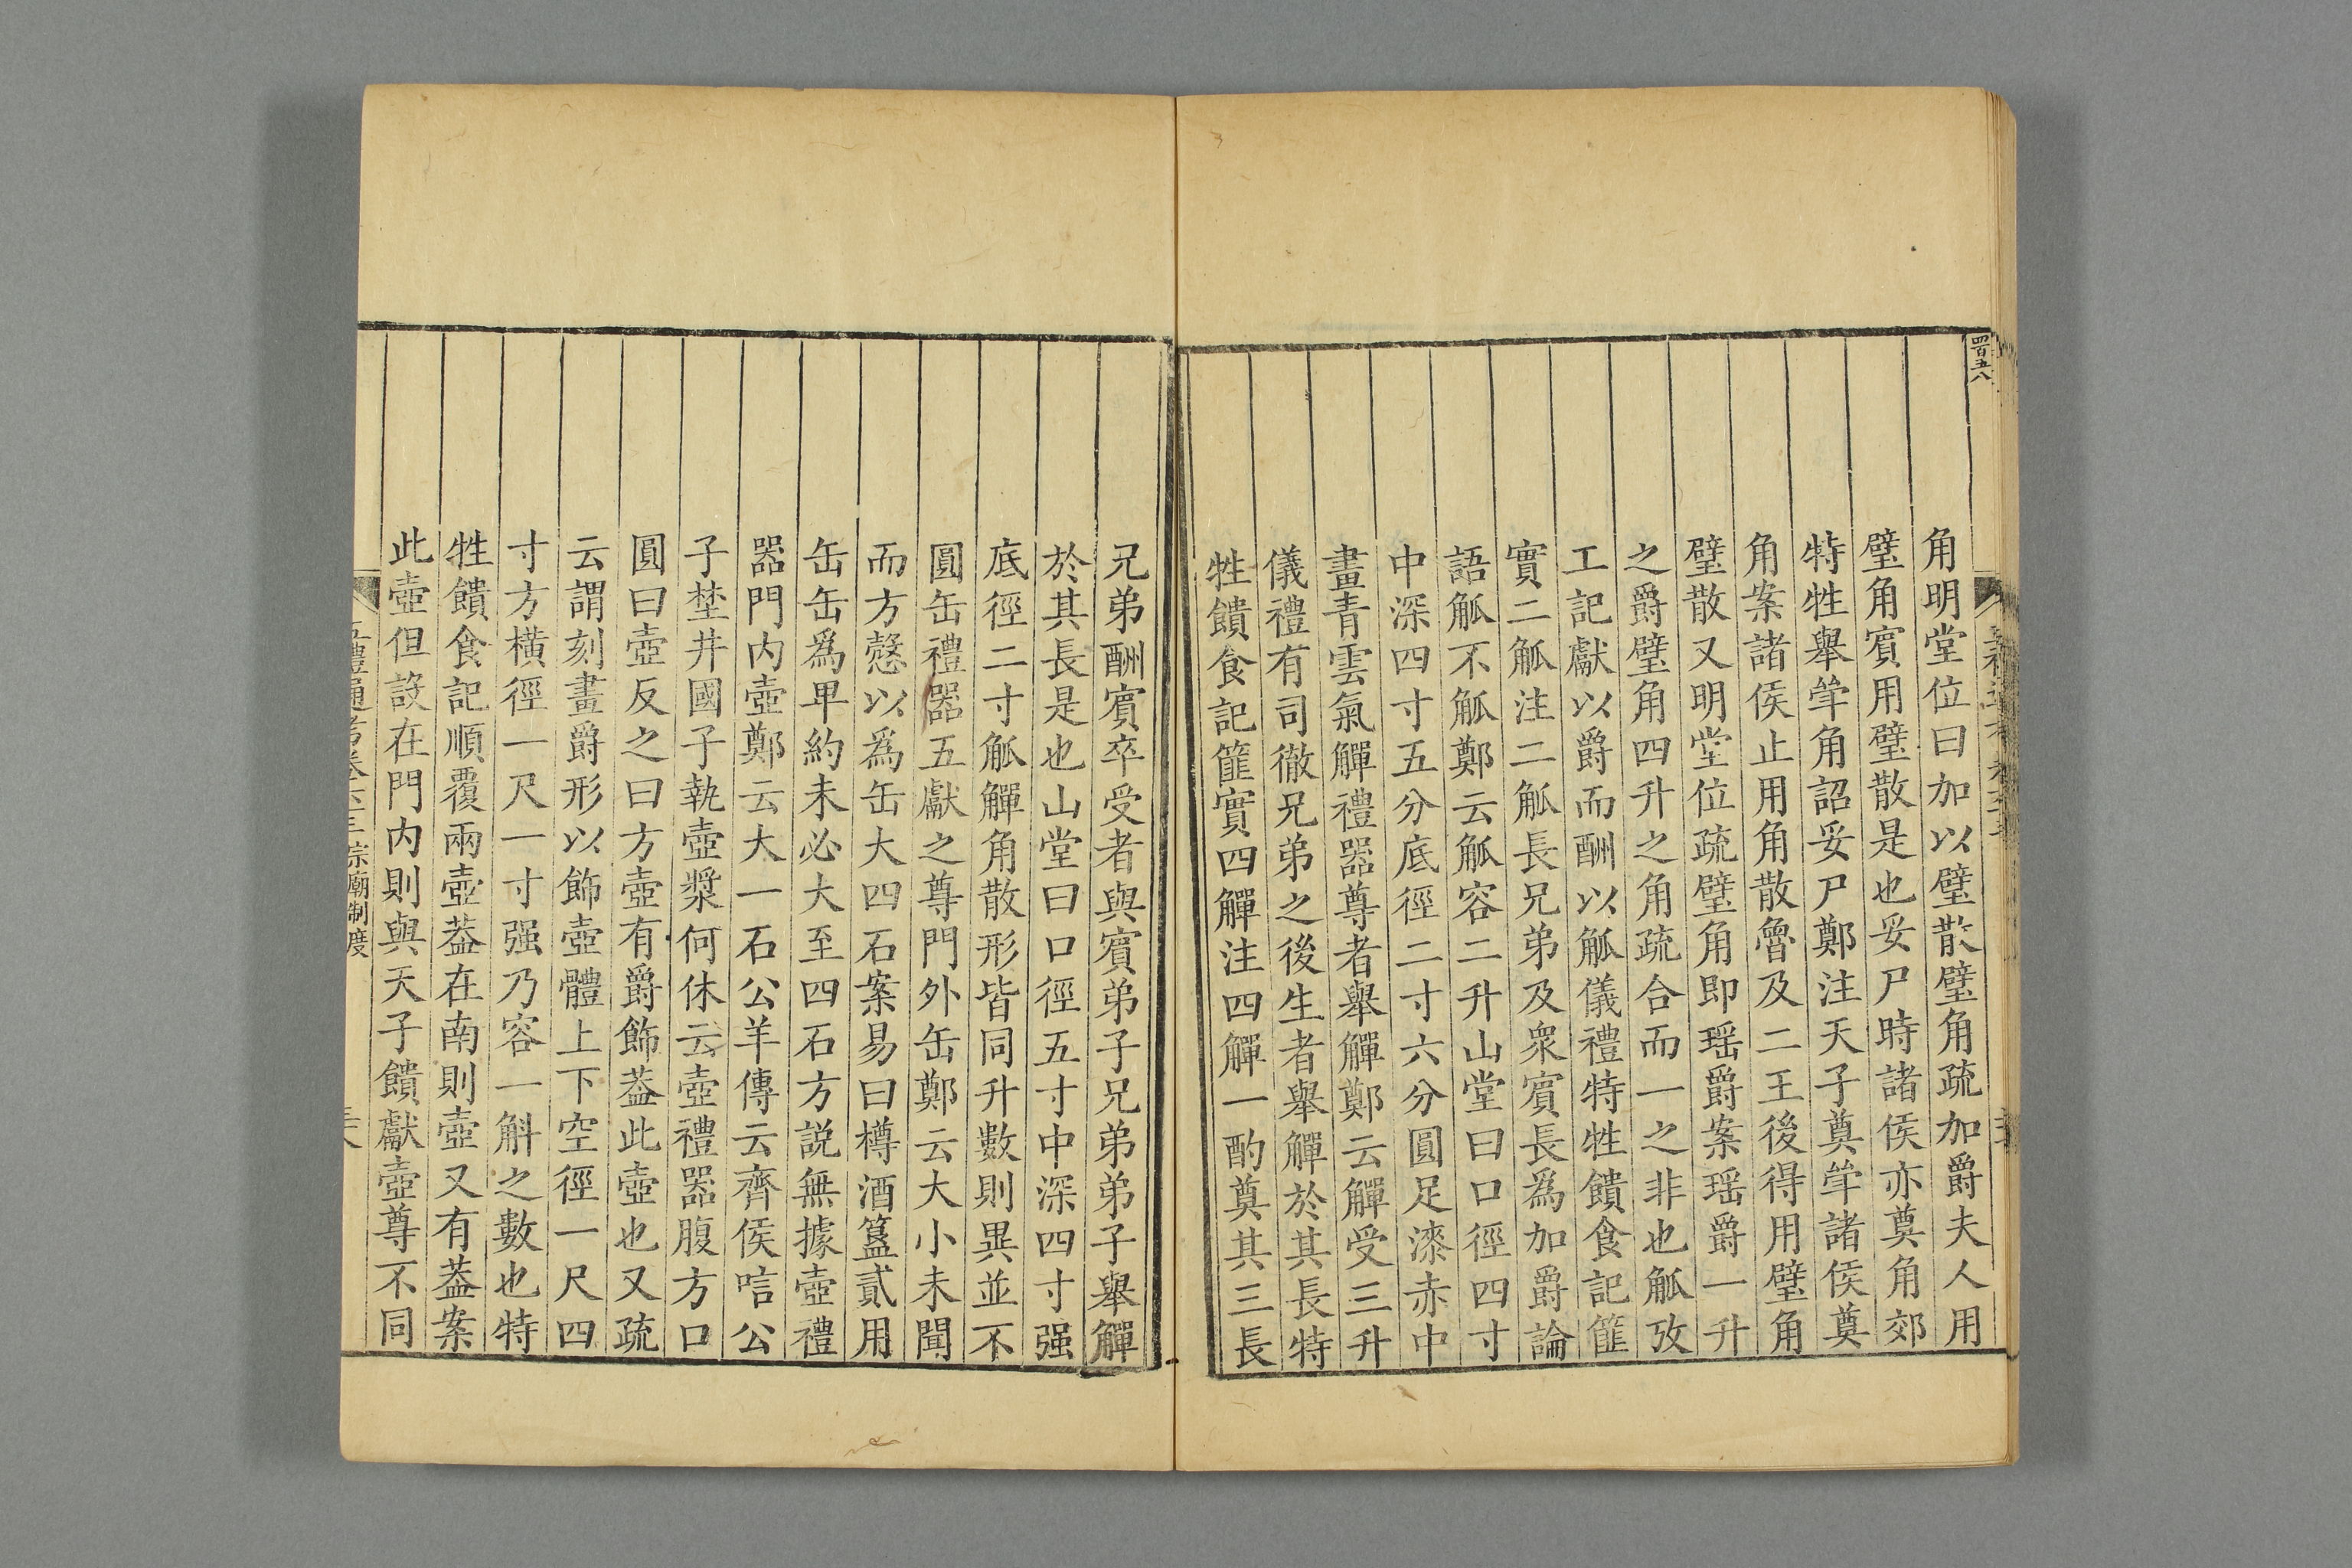 四百五八
角明堂位曰加以璧散璧角疏加爵夫人用
璧角賓用璧散是也妥尸時諸侯亦奠角郊
特牲舉斝角詔妥尸鄭注天子奠斝諸侯奠
角案諸侯止用角散魯及二王後得用璧角
璧散又明堂位疏璧角即瑶爵案瑶爵一升
之爵璧角四升之角疏合而一之非也觚攷
工記獻以爵而酬以觚儀禮特牲饋食記篚
實二觚注二觚長兄弟及衆賓長為加爵論
語觚不觚鄭云觚容二升山堂曰口徑四寸
中深四寸五分底徑二寸六分圓足漆赤中
畫青雲氣觶禮器尊者舉觶鄭云觶受三升
儀禮有司徹兄弟之後生者舉觶於其長特
牲饋食記篚實四觶注四觶一酌奠其三長
兄弟酬賓卒受者與賓弟子兄弟弟子舉觶
於其長是也山堂曰口徑五寸中深四寸强
底徑二寸觚觶角散形皆同升數則異並不
圓缶禮器五獻之尊門外缶鄭云大小未聞
而方慤以為缶大四石案易曰樽酒簋貳用
缶缶爲畢約未必大至四石方説無據壺禮
器門内壺鄭云大一石公羊傳云齊侯唁公
子埜井國子執壺漿何休云壺禮器腹方口
圓曰壺反之曰方壺有爵飾葢此壺也又疏
云謂刻畫爵形以飾壺體上下空徑一尺四
寸方横徑一尺一寸强乃容一斛之數也特
牲饋食記順覆兩壺葢在南則壺又有葢案
此壺但設在門内則與天子饋獻壺尊不同
宗廟制度